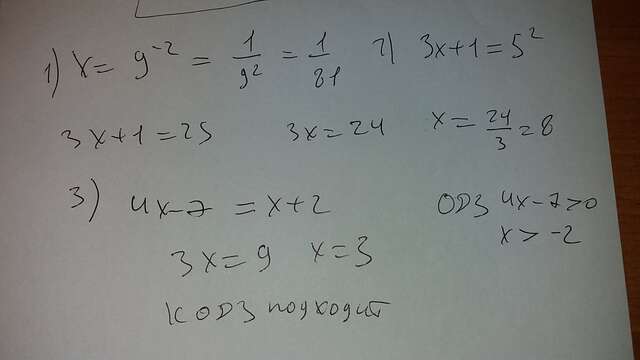 1) x = 9⁻² = 1/9² = 1/81 2) 3x+1=5²
3x+1=25 3x=24 x=24/3=8
3) 4x-7 = x+2 ОДЗ 4x-7>0
3x=9 x=3 x>-2
К ОДЗ подходит